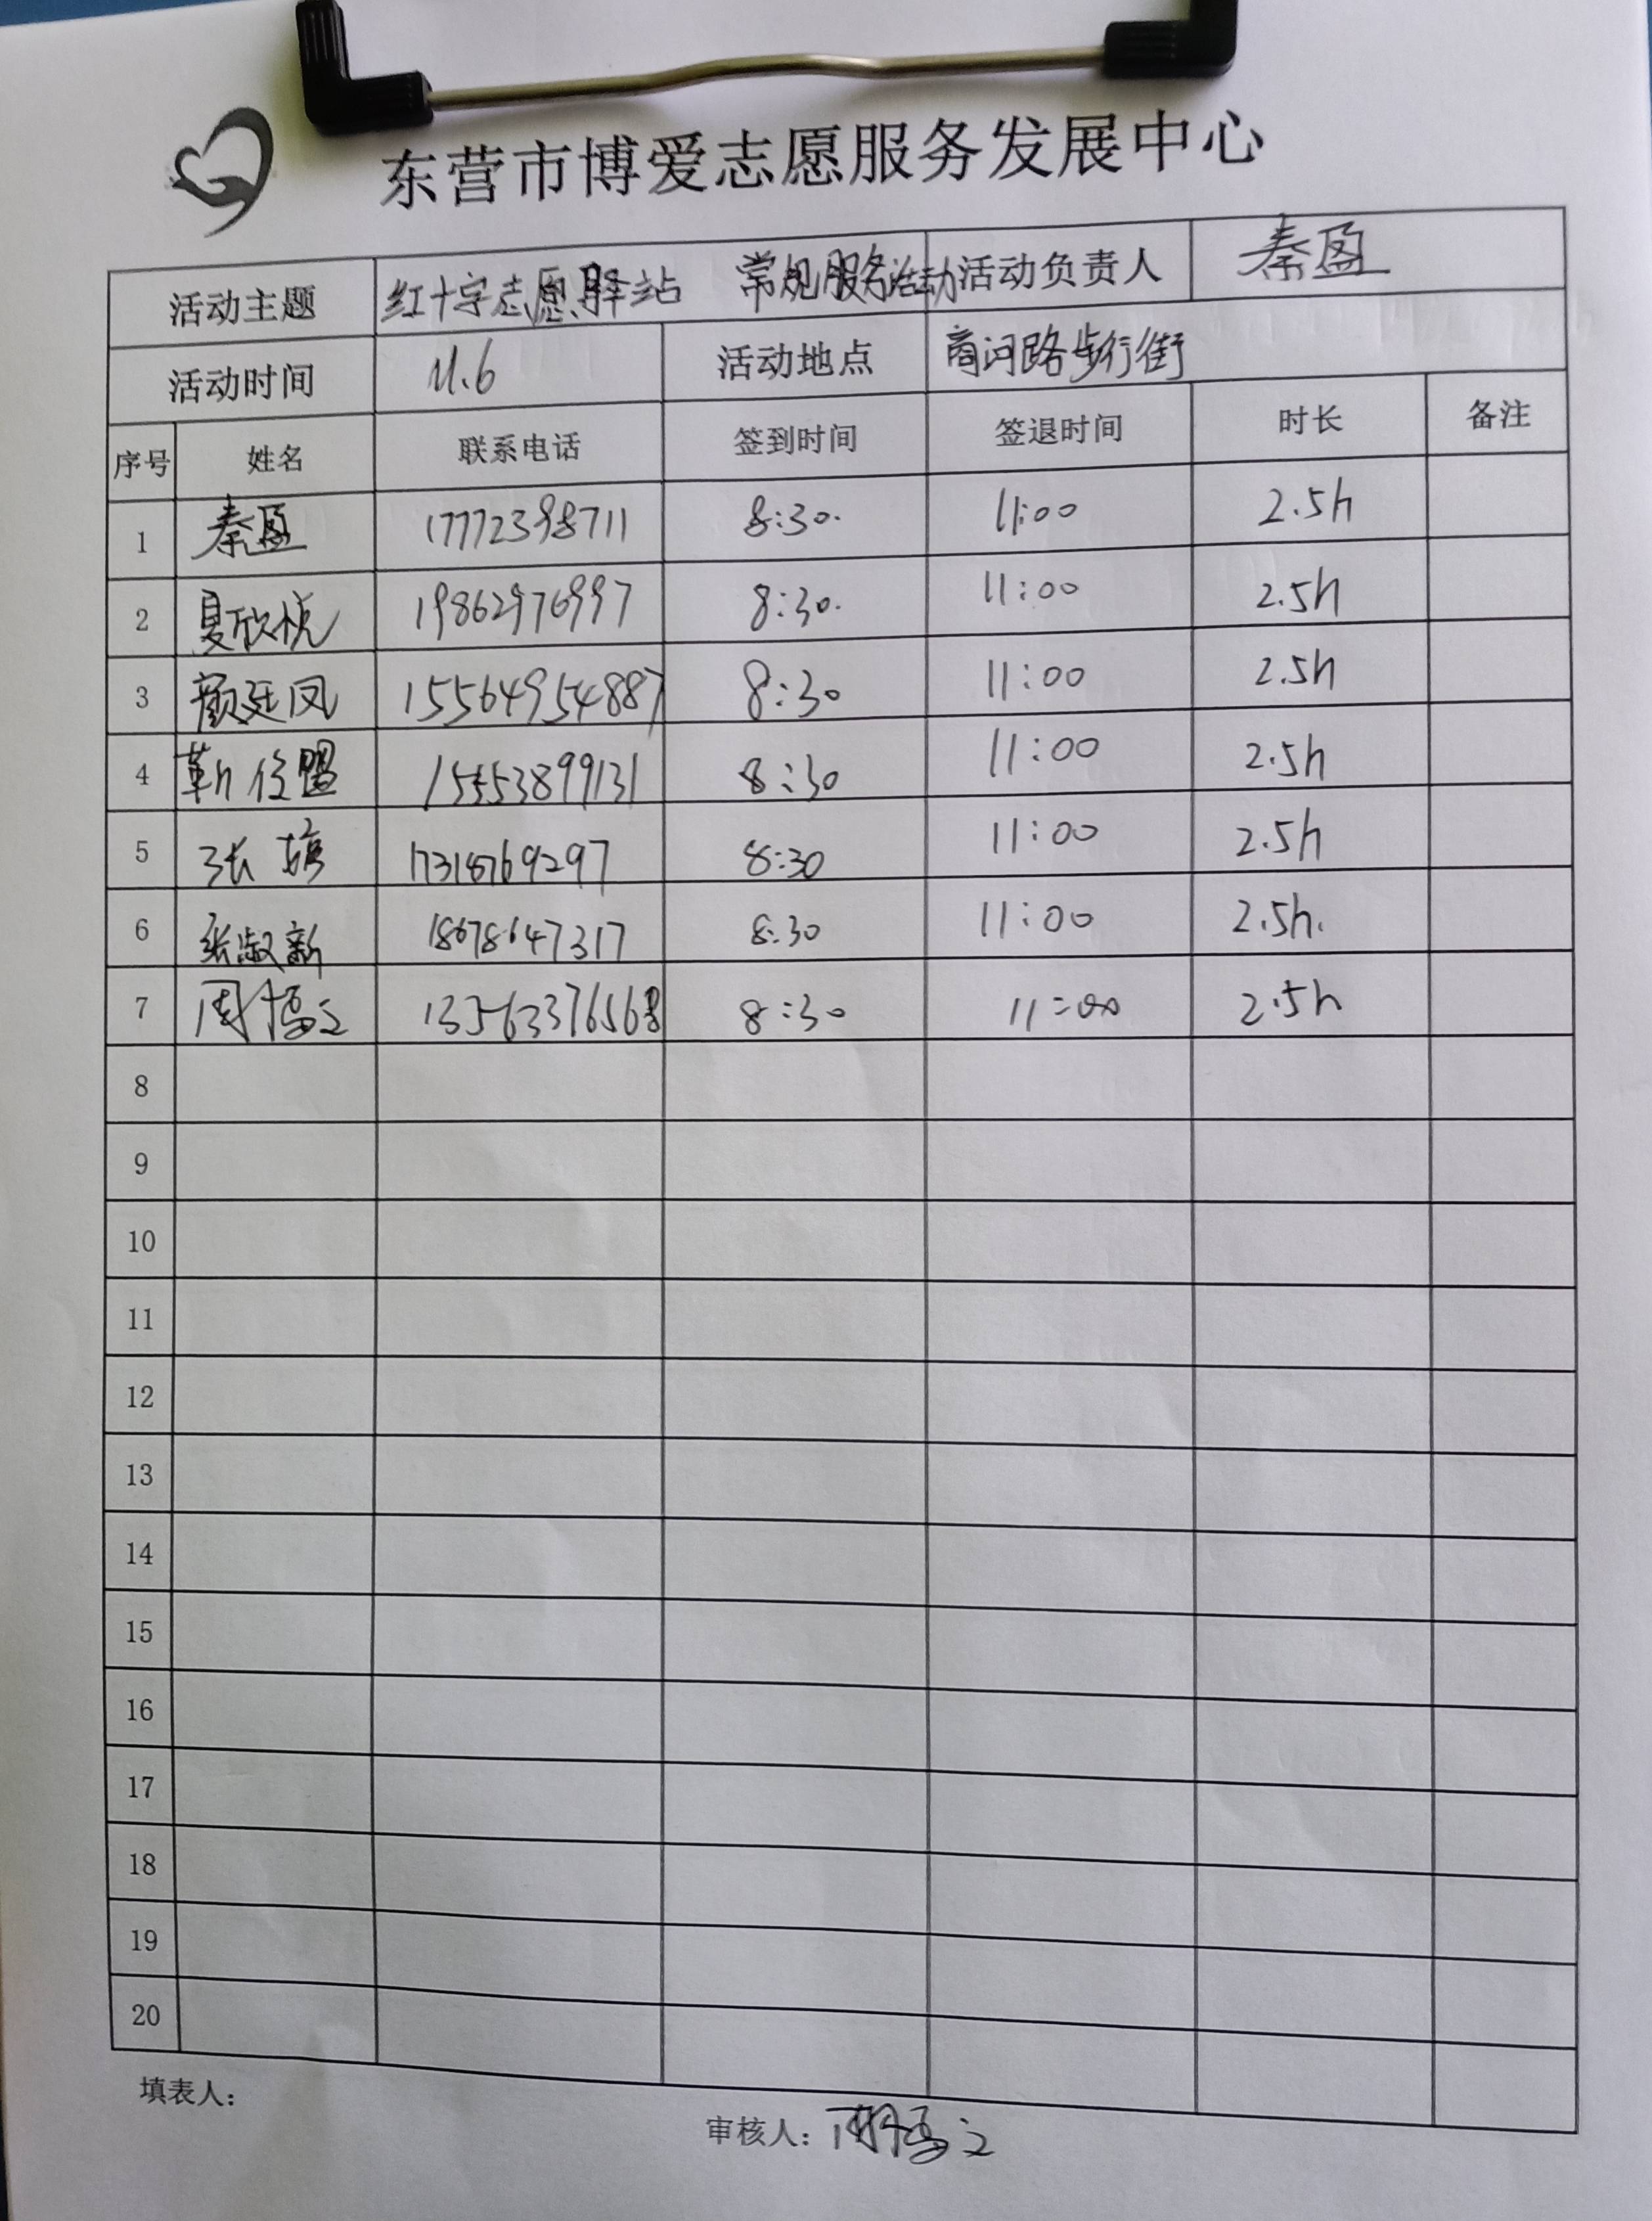 东营市博爱志愿服务发展中心
活动主题 红十字志愿驿站 常规服务活动 活动负责人 秦盈
活动时间 11.6 活动地点 商河路步行街
序号 姓名 联系电话 签到时间 签退时间 时长 备注
1 秦盈 17772398711 8:30. 11:00 2.5h
2 夏欣悦 19862976997 8:30. 11:00 2.5h
3 颜廷凤 15564954887 8:30 11:00 2.5h
4 靳 盟 15553899131 8:30 11:00 2.5h
5 张 17318769297 8:30 11:00 2.5h
6 张淑新 18678647317 8:30 11:00 2.5h.
7 周 13563376568 8:30 11:00 2.5h
8
9
10
11
12
13
14
15
16
17
18
19
20
填表人：
审核人：